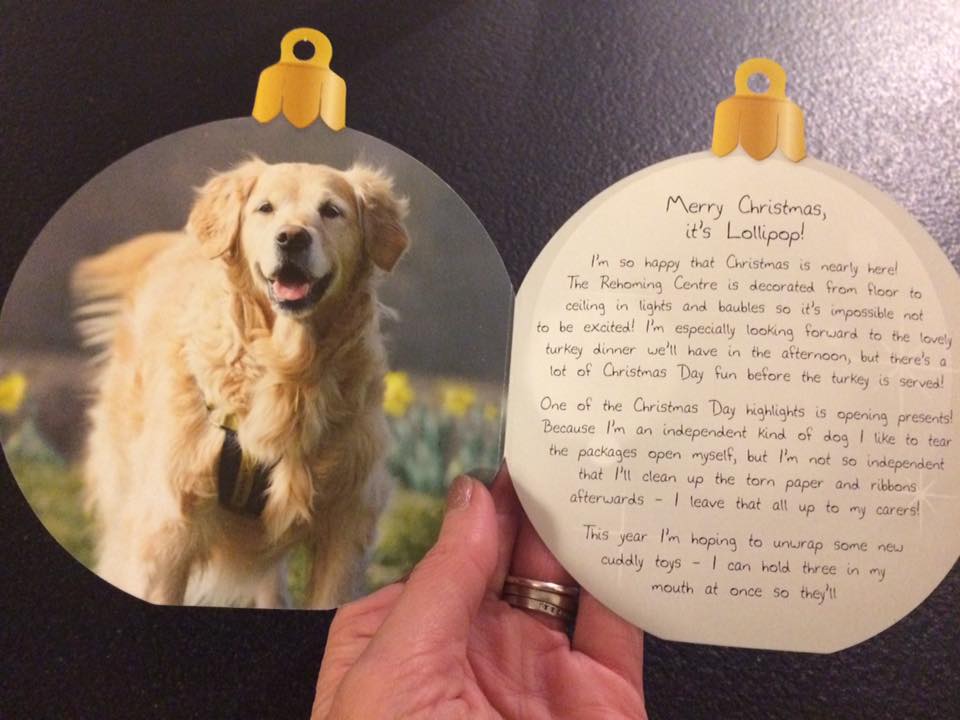 Merry Christmas,
it's Lollipop!
I'm so happy that Christmas is nearly here!
The Rehoming Centre is decorated from floor to
ceiling in lights and baubles so it's impossible not
to be excited! I'm especially looking forward to the lovely
turkey dinner we'll have in the afternoon, but there's a
lot of Christmas Day fun before the turkey is served!
One of the Christmas Day highlights is opening presents!
Because I'm an independent kind of dog I like to tear
the packages open myself, but I'm not so independent
that I'll clean up the torn paper and ribbons
afterwards - I leave that all up to my carers!
This year I'm hoping to unwrap some new
cuddly toys - I can hold three in my
mouth at once so they'll